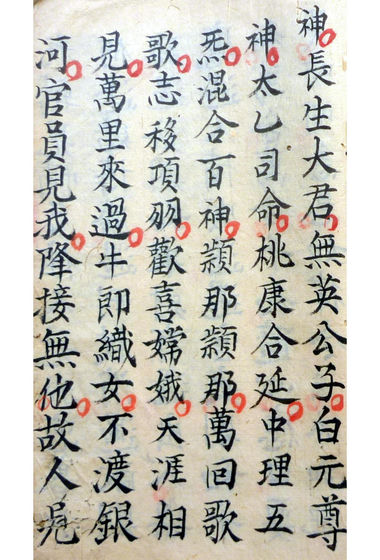 神長生大君無英公子白元尊
神太乙司命桃康合延中理五
炁混合百神頴那頴那萬回歌
歌志移項羽歡喜嫦娥天涯相
見萬里來過牛即織女不渡銀
河官員見我降接無他故人